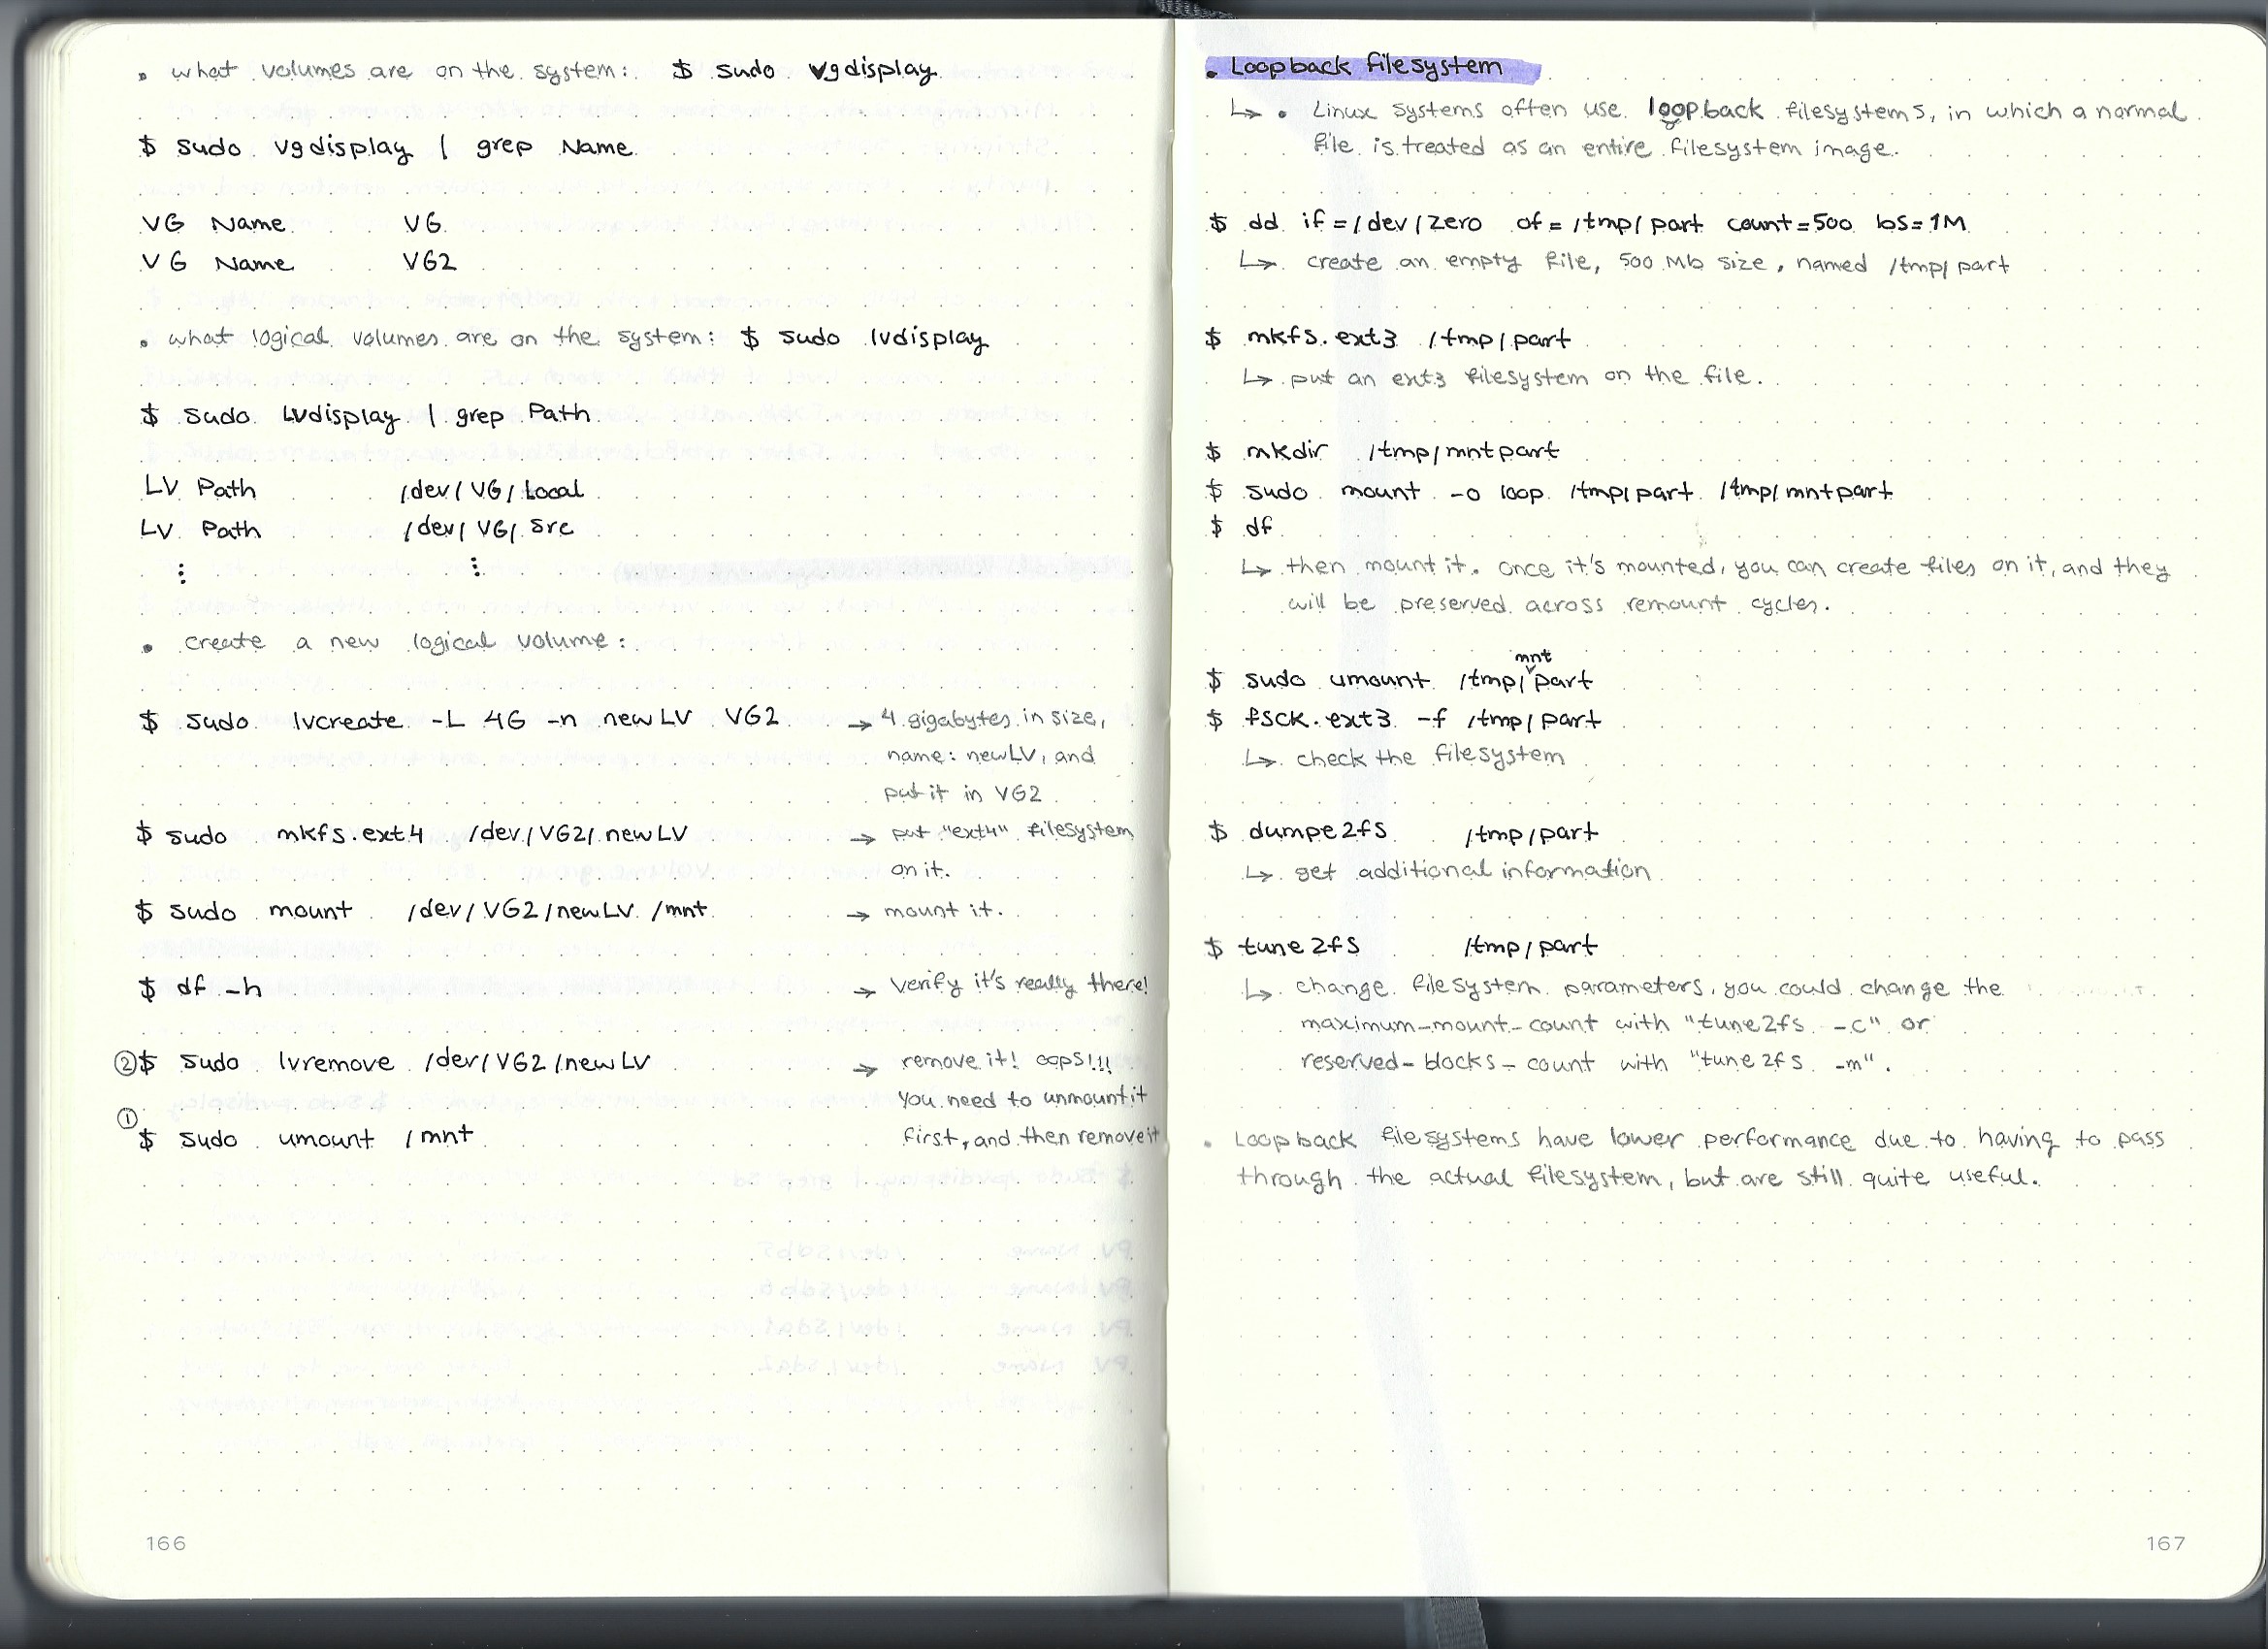 • what volumes are on the system: $ sudo vgdisplay
$ sudo vgdisplay | grep Name
VG Name VG
VG Name VG2
• what logical volumes are on the system: $ sudo lvdisplay
$ sudo Lvdisplay | grep Path
LV Path /dev/VG/Local
LV Path /dev/VG/src
⋮ ⋮
• create a new logical volume:
$ sudo lvcreate -L 4G -n newLV VG2 → 4 gigabytes in size,
name: newLV, and
put it in VG2
$ sudo mkfs.ext4 /dev/VG2/newLV → put "ext4" filesystem
on it.
$ sudo mount /dev/VG2/newLV /mnt → mount it.
$ df -h → verify it's really there!
② $ sudo lvremove /dev/VG2/newLV → remove it! oops!!!
You need to unmount it
① $ sudo umount /mnt first, and then remove it
166
• Loopback filesystem
↳ • Linux systems often use loopback filesystems, in which a normal
file is treated as an entire filesystem image.
$ dd if=/dev/zero of=/tmp/part count=500 bs=1M
↳ create an empty file, 500 Mb size, named /tmp/part
$ mkfs.ext3 /tmp/part
↳ put an ext3 filesystem on the file.
$ mkdir /tmp/mntpart
$ sudo mount -o loop /tmp/part /tmp/mntpart
$ df
↳ then mount it. once it's mounted, you can create files on it, and they
will be preserved across remount cycles.
$ sudo umount /tmp/mntpart
$ fsck.ext3 -f /tmp/part
↳ check the filesystem
$ dumpe2fs /tmp/part
↳ get additional information
$ tune2fs /tmp/part
↳ change filesystem parameters, you could change the
maximum-mount-count with "tune2fs -c" or
reserved-blocks-count with "tune2fs -m".
• Loopback filesystems have lower performance due to having to pass
through the actual filesystem, but are still quite useful.
167